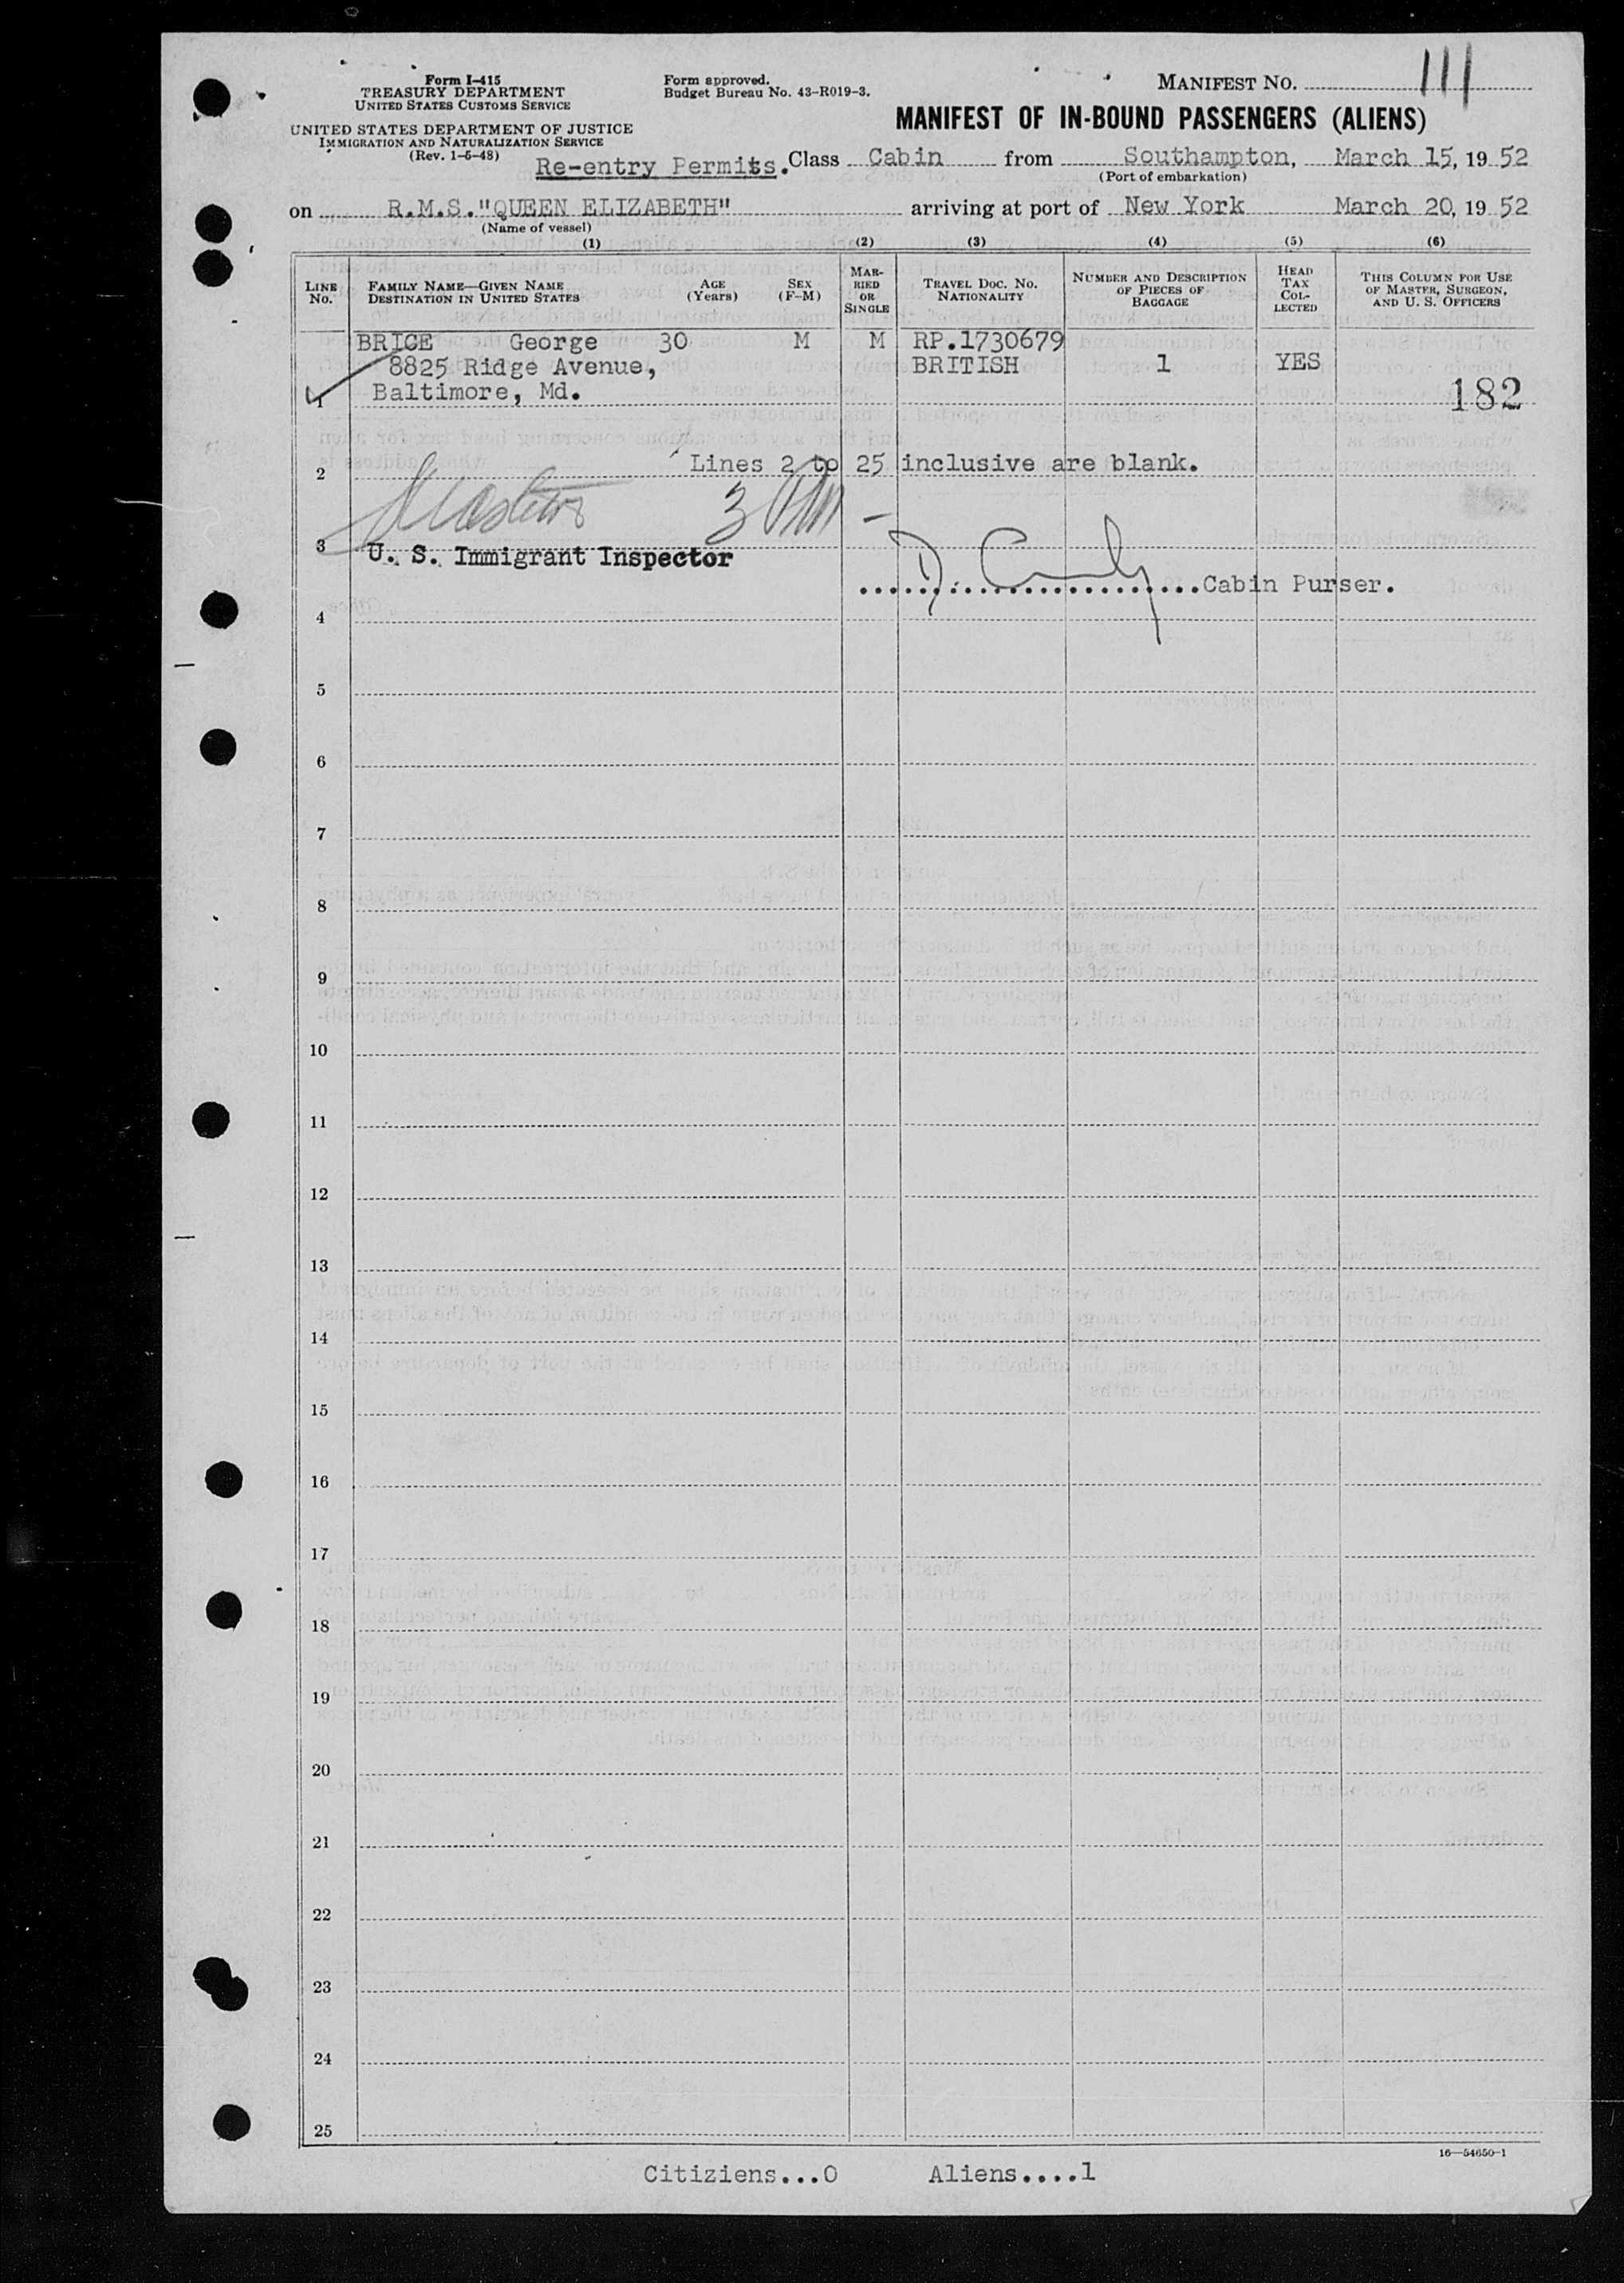 Form I-415
TREASURY DEPARTMENT
UNITED STATES CUSTOMS SERVICE
UNITED STATES DEPARTMENT OF JUSTICE
IMMIGRATION AND NATURALIZATION SERVICE
(Rev. 1-5-48)
Form approved.
Budget Bureau No. 43-R019-3.
MANIFEST NO. 111
MANIFEST OF IN-BOUND PASSENGERS (ALIENS)
Re-entry Permits. Class Cabin from Southampton, March 15, 19 52
(Port of embarkation)
on R.M.S."QUEEN ELIZABETH" arriving at port of New York March 20, 19 52
(Name of vessel)
(1) (2) (3) (4) (5) (6)
LINE NO. FAMILY NAME—GIVEN NAME DESTINATION IN UNITED STATES AGE (Years) SEX (F-M) MARRIED OR SINGLE TRAVEL DOC. NO. NATIONALITY NUMBER AND DESCRIPTION OF PIECES OF BAGGAGE HEAD TAX COLLECTED THIS COLUMN FOR USE OF MASTER, SURGEON, AND U. S. OFFICERS
BRICE George 30 M M RP.1730679
8825 Ridge Avenue, BRITISH 1 YES
1 Baltimore, Md. 182
2 Lines 2 to 25 inclusive are blank.
3 U. S. Immigrant Inspector
Cabin Purser.
4
5
6
7
8
9
10
11
12
13
14
15
16
17
18
19
20
21
22
23
24
25
16—54650-1
Citiziens...0 Aliens....1